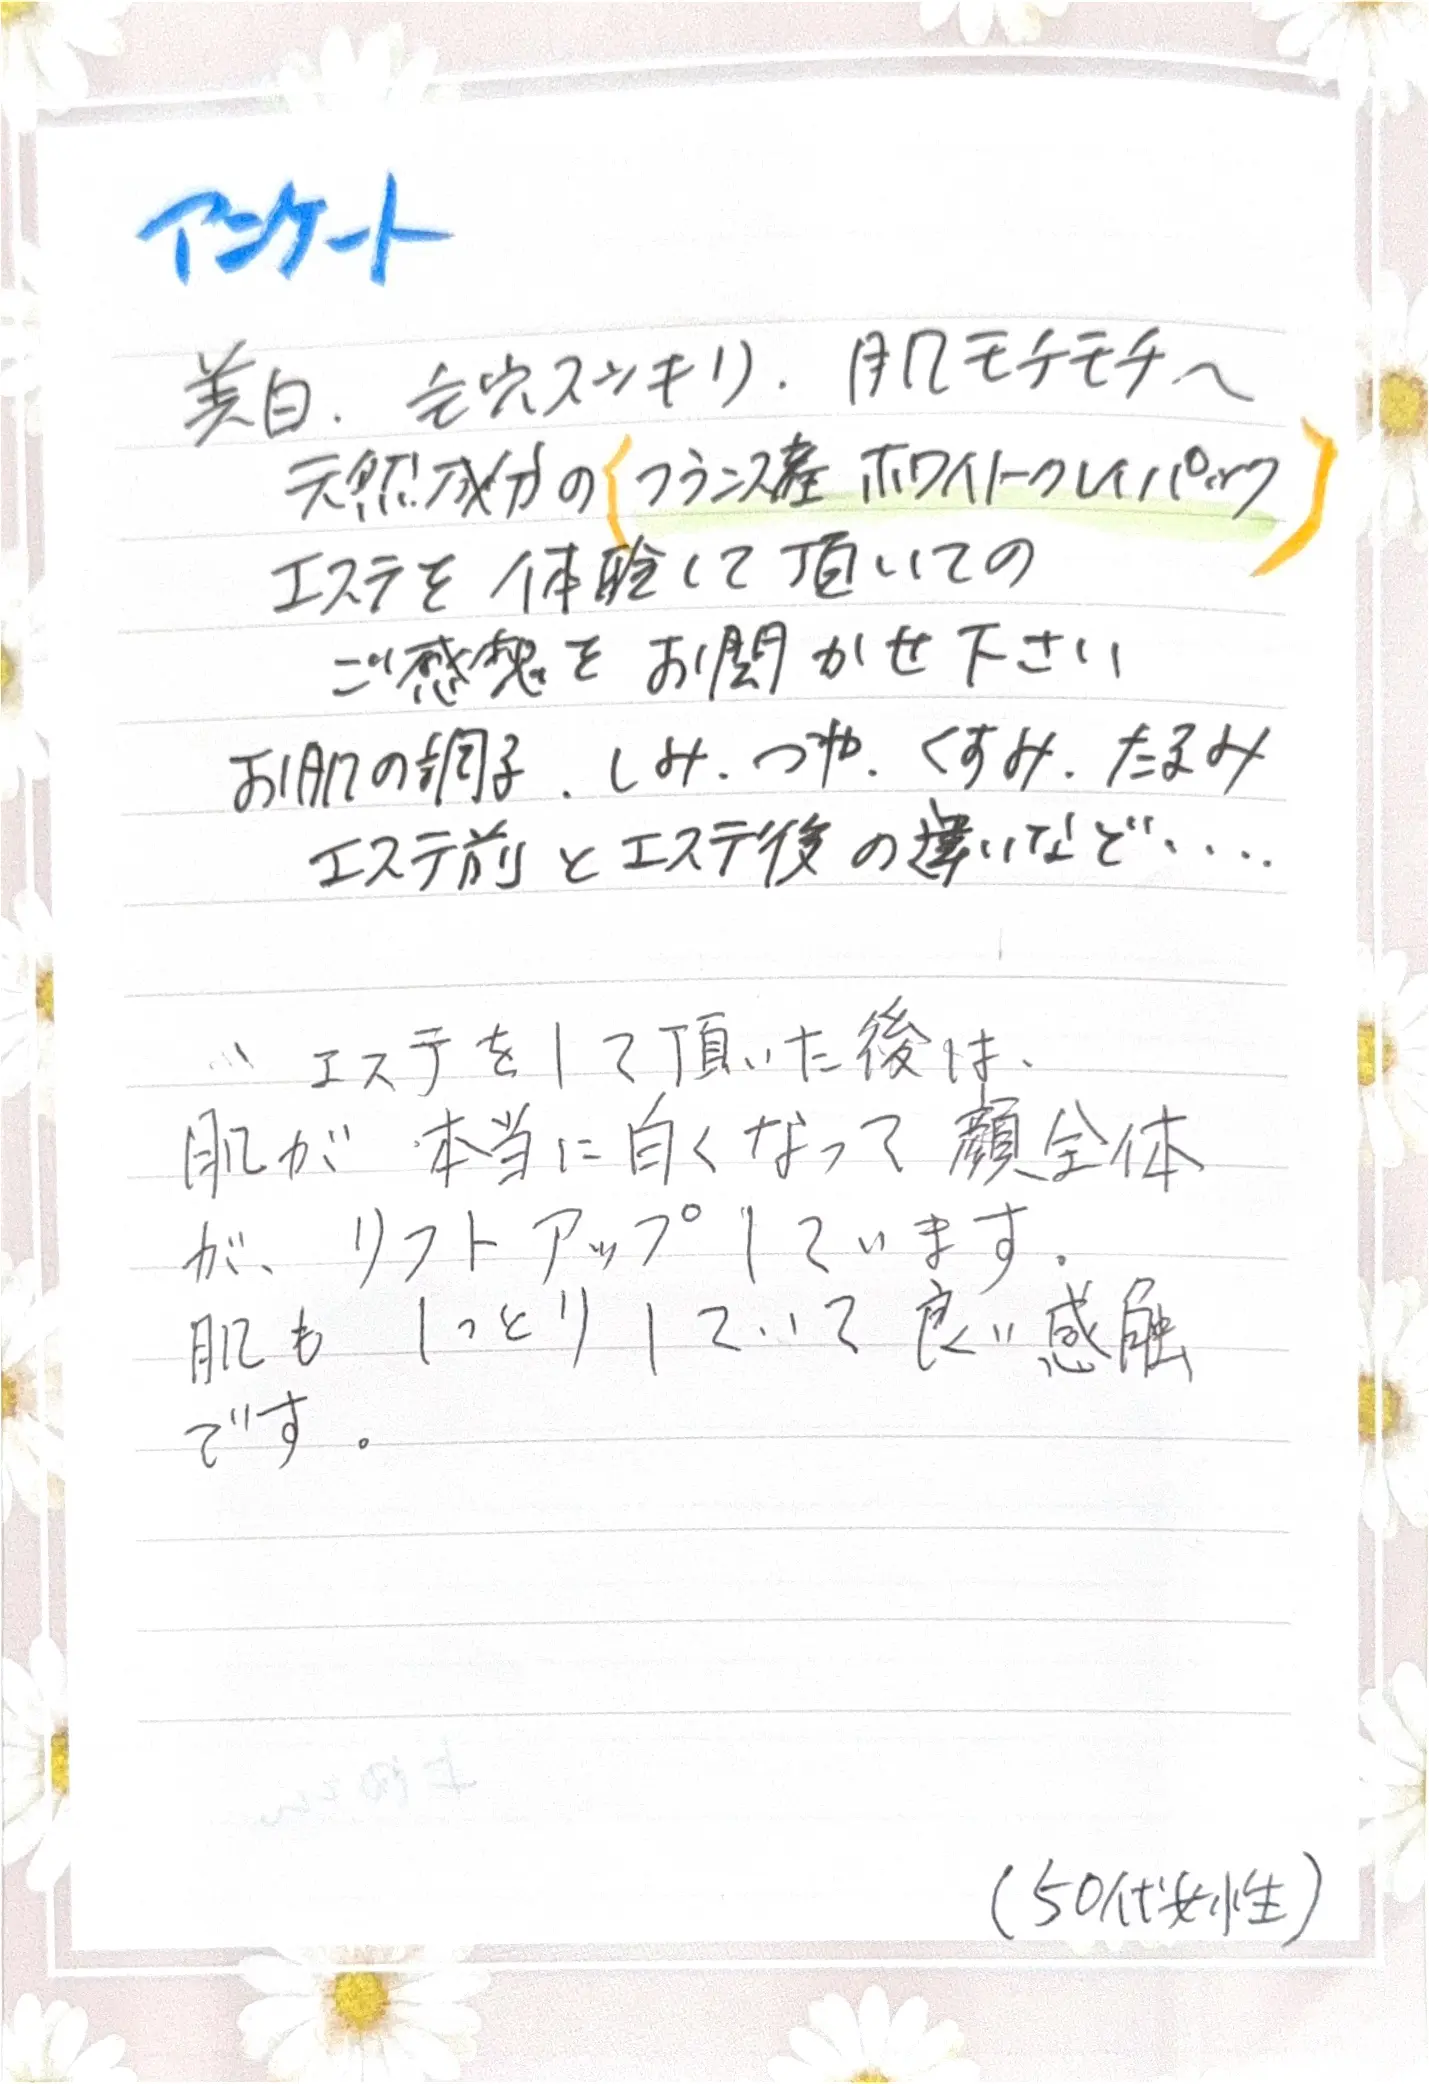 アンケート
美白．毛穴スッキリ．肌モチモチへ
天然成分の(フランス産 ホワイトクレイパック)
エステを体験して頂いての
ご感想をお聞かせ下さい
お肌の調子．しみ．つや．くすみ．たるみ
エステ前とエステ後の違いなど・・・・
エステをして頂いた後は、
肌が本当に白くなって顔全体
が、リフトアップしています。
肌もしっとりしていて良い感触
です。
(50代女性)